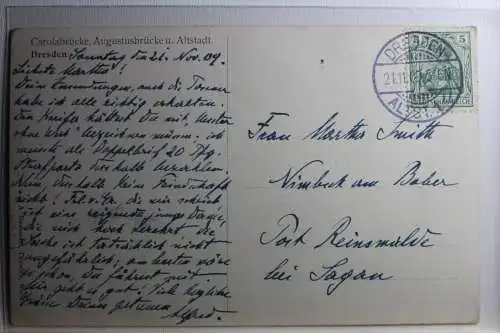 Carolabrücke, Augustusbrücke u. Altstadt.
Dresden Sonntag den 21. Nov. 09.
Liebste Martha!
Deine Sendungen, auch die
habe ich alle richtig erhalten.
Den hättest Du als „Muster
ohne Wert" bezeichnen müssen. ich
musste als Doppelbrief 20 Pfg.
Strafporto deshalb bezahlen.
deshalb keine Feindschaft
nicht! Frl. v. die mir schrieb
ist eine junge Dame,
die mich hoch verehrt die
Sache ist tatsächlich nicht
ungefährlich; am besten wäre
es schon, Du
geht es gut! Viele herzliche
Grüsse Deines getreuen
Alfred.
DRESDEN
21.11.09
ALTST.
5
Frau Martha Smith
Nimbsch am Bober
Post Reinswalde
bei Sagan